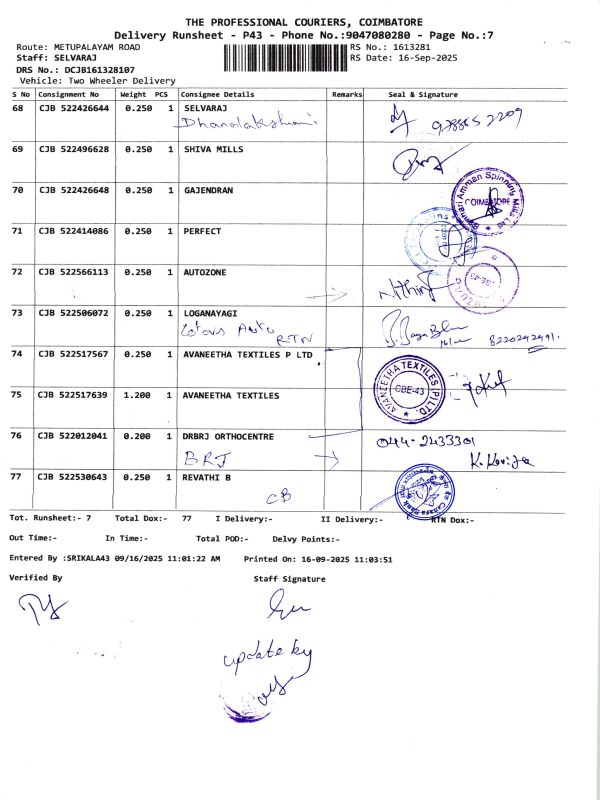 THE PROFESSIONAL COURIERS, COIMBATORE
Delivery Runsheet - P43 - Phone No.:9047080280 - Page No.:7
Route: METUPALAYAM ROAD RS No.: 1613281
Staff: SELVARAJ RS Date: 16-Sep-2025
DRS No.: DCJB161328107
Vehicle: Two Wheeler Delivery
S No Consignment No Weight PCS Consignee Details Remarks Seal & Signature
68 CJB 522426644 0.250 1 SELVARAJ
Dhanalakshmi
69 CJB 522496628 0.250 1 SHIVA MILLS
70 CJB 522426648 0.250 1 GAJENDRAN
COIMBATORE
71 CJB 522414086 0.250 1 PERFECT
72 CJB 522566113 0.250 1 AUTOZONE
73 CJB 522506072 0.250 1 LOGANAYAGI
Lotus Auto RTN 8220242491.
74 CJB 522517567 0.250 1 AVANEETHA TEXTILES P LTD
AVANEETHA TEXTILES (P) LTD. CBE-43
75 CJB 522517639 1.200 1 AVANEETHA TEXTILES
76 CJB 522012041 0.200 1 DRBRJ ORTHOCENTRE 044-2433301
BRJ K. Kaviya
77 CJB 522530643 0.250 1 REVATHI B
CB
Tot. Runsheet:- 7 Total Dox:- 77 I Delivery:- II Delivery:- RTN Dox:-
Out Time:- In Time:- Total POD:- Delvy Points:-
Entered By :SRIKALA43 09/16/2025 11:01:22 AM Printed On: 16-09-2025 11:03:51
Verified By Staff Signature
update by